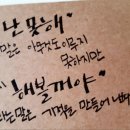 "난 못해"
말은 아무것도 이루지
못하지만
"해볼꺼야"
라는 말은 기적을 만들어 낸다